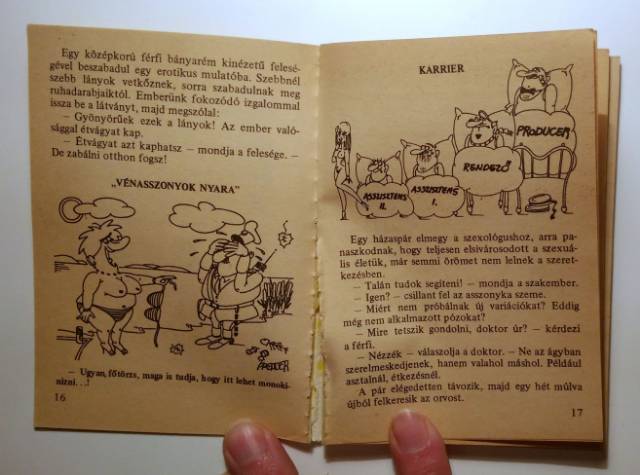 Egy középkorú férfi bányarém kinézetű felesé-
gével beszabadul egy erotikus mulatóba. Szebbnél
szebb lányok vetkőznek, sorra szabadulnak meg
ruhadarabjaiktól. Emberünk fokozódó izgalommal
issza be a látványt, majd megszólal:
— Gyönyörűek ezek a lányok! Az ember való-
sággal étvágyat kap.
— Étvágyat azt kaphatsz — mondja a felesége. —
De zabálni otthon fogsz!
„VÉNASSZONYOK NYARA”
— Ugyan, főtörzs, maga is tudja, hogy itt lehet monoki-
nizni...!
16
KARRIER
PRODUCER
RENDEZŐ
ASSZISZTENS
I.
ASSZISZTENS
II.
Egy házaspár elmegy a szexológushoz, arra pa-
naszkodnak, hogy teljesen elsivárosodott a szexuá-
lis életük, már semmi örömet nem lelnek a szeret-
kezésben.
— Talán tudok segíteni! — mondja a szakember.
— Igen? — csillant fel az asszonyka szeme.
— Miért nem próbálnak új variációkat? Eddig
még nem alkalmazott pózokat?
— Mire tetszik gondolni, doktor úr? — kérdezi
a férfi.
— Nézzék — válaszolja a doktor. — Ne az ágyban
szerelmeskedjenek, hanem valahol máshol. Például
asztalnál, étkezésnél.
A pár elégedetten távozik, majd egy hét múlva
újból felkeresik az orvost.
17